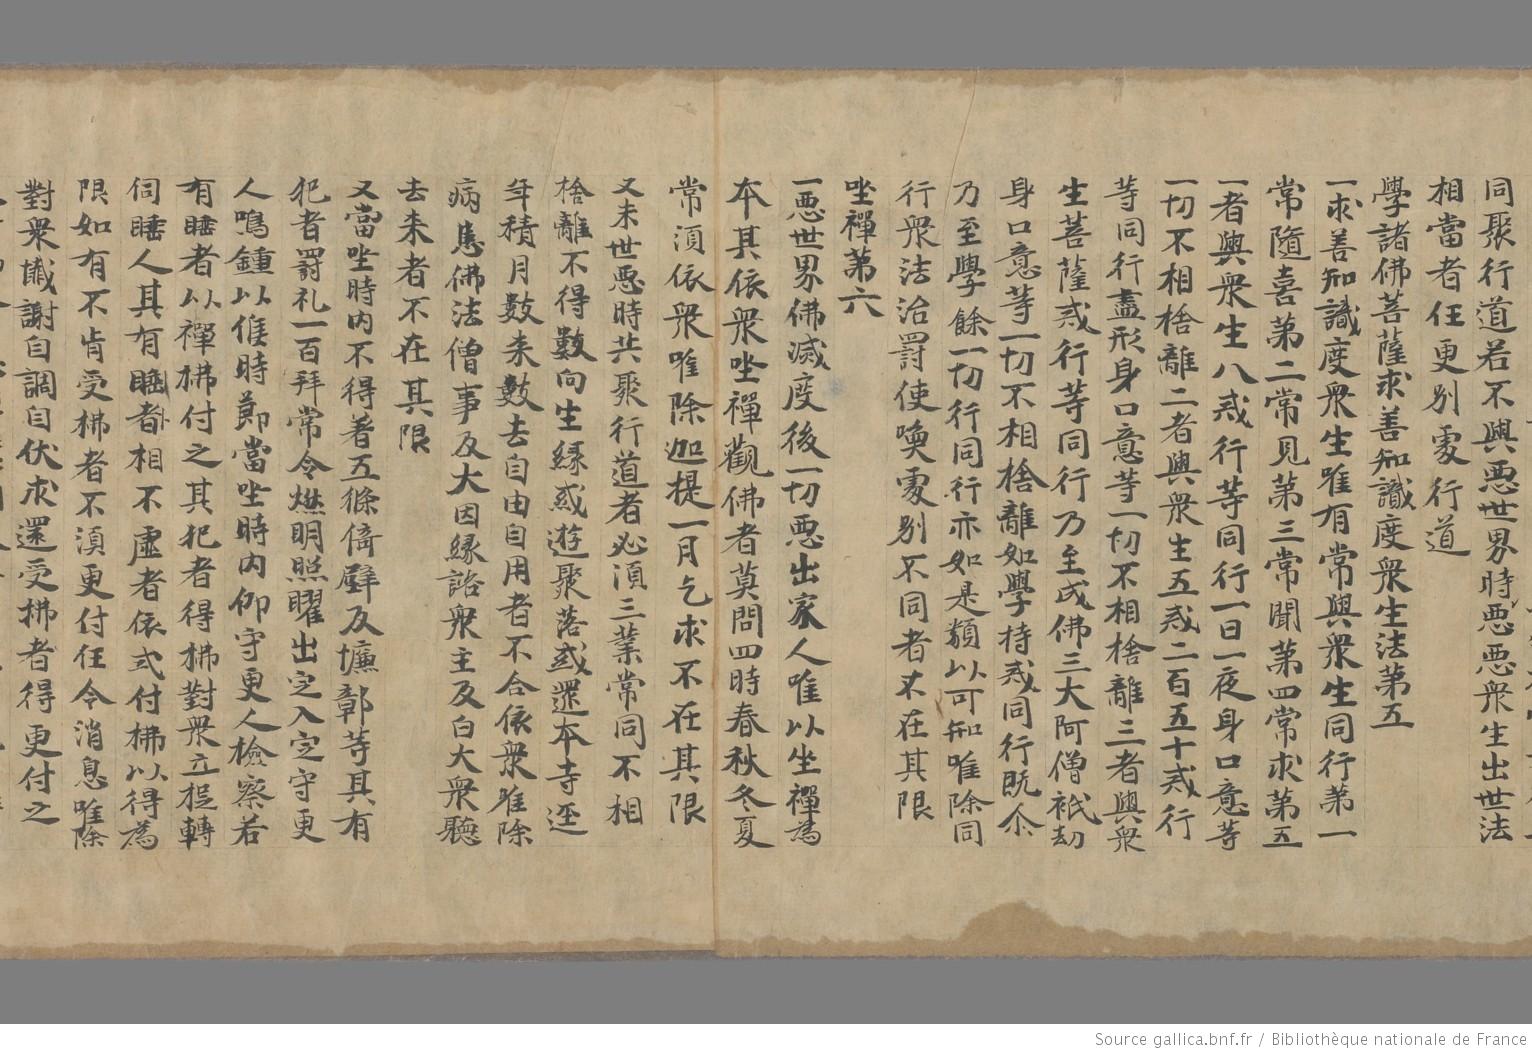 同聚行道若不與惡世界時惡惡衆生出世法
相當者任更别䖏行道
學諸佛菩薩求善知識度衆生法第五
一求善知識度衆生唯有常與衆生同行第一
常隨喜第二常見第三常聞第四常求第五
一者與衆生八戒行等同行一日一夜身口意等
一切不相捨離二者與衆生五戒二百五十戒行
等同行盡形身口意等一切不相捨離三者與衆
生菩薩戒行等同行乃至成佛三大阿僧祇劫
身口意等一切不相捨離如學持戒同行既尒
乃至學餘一切行同行亦如是類以可知唯除同
行衆法治罸使喚䖏别不同者不在其限
坐禪第六
一惡世界佛滅度後一切惡出家人唯以坐禪爲
本其依衆坐禪觀佛者莫問四時春秋冬夏
常湏依衆唯除迦提一月乞求不在其限
又末世惡時共聚行道者必湏三業常同不相
捨離不得數向生緣或遊聚落或還本寺逕
年積月數来數去自由自用者不合依衆唯除
病患佛法僧事及大因緣諮衆主及白大衆聽
去来者不在其限
又當坐時内不得著五條倚壁及壥鄣等其有
犯者罸礼一百拜常令燃明照曜出定入定守更
人鳴鍾以催時莭當坐時内仰守更人檢察若
有睡者以禪拂付之其犯者得拂對衆立捉轉
伺睡人其有睡者相不虛者依式付拂以得爲
限如有不肯受拂者不湏更付任令消息唯除
對衆懺謝自調自伏求還受拂者得更付之
Source gallica.bnf.fr / Bibliothèque nationale de France